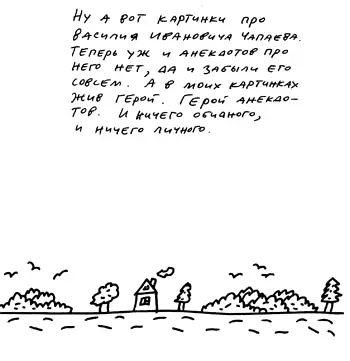 Ну а вот картинки про
Василия Ивановича Чапаева.
Теперь уж и анекдотов про
него нет, да и забыли его
совсем. А в моих картинках
жив герой. Герой анекдо-
тов. И ничего обидного,
и ничего личного.